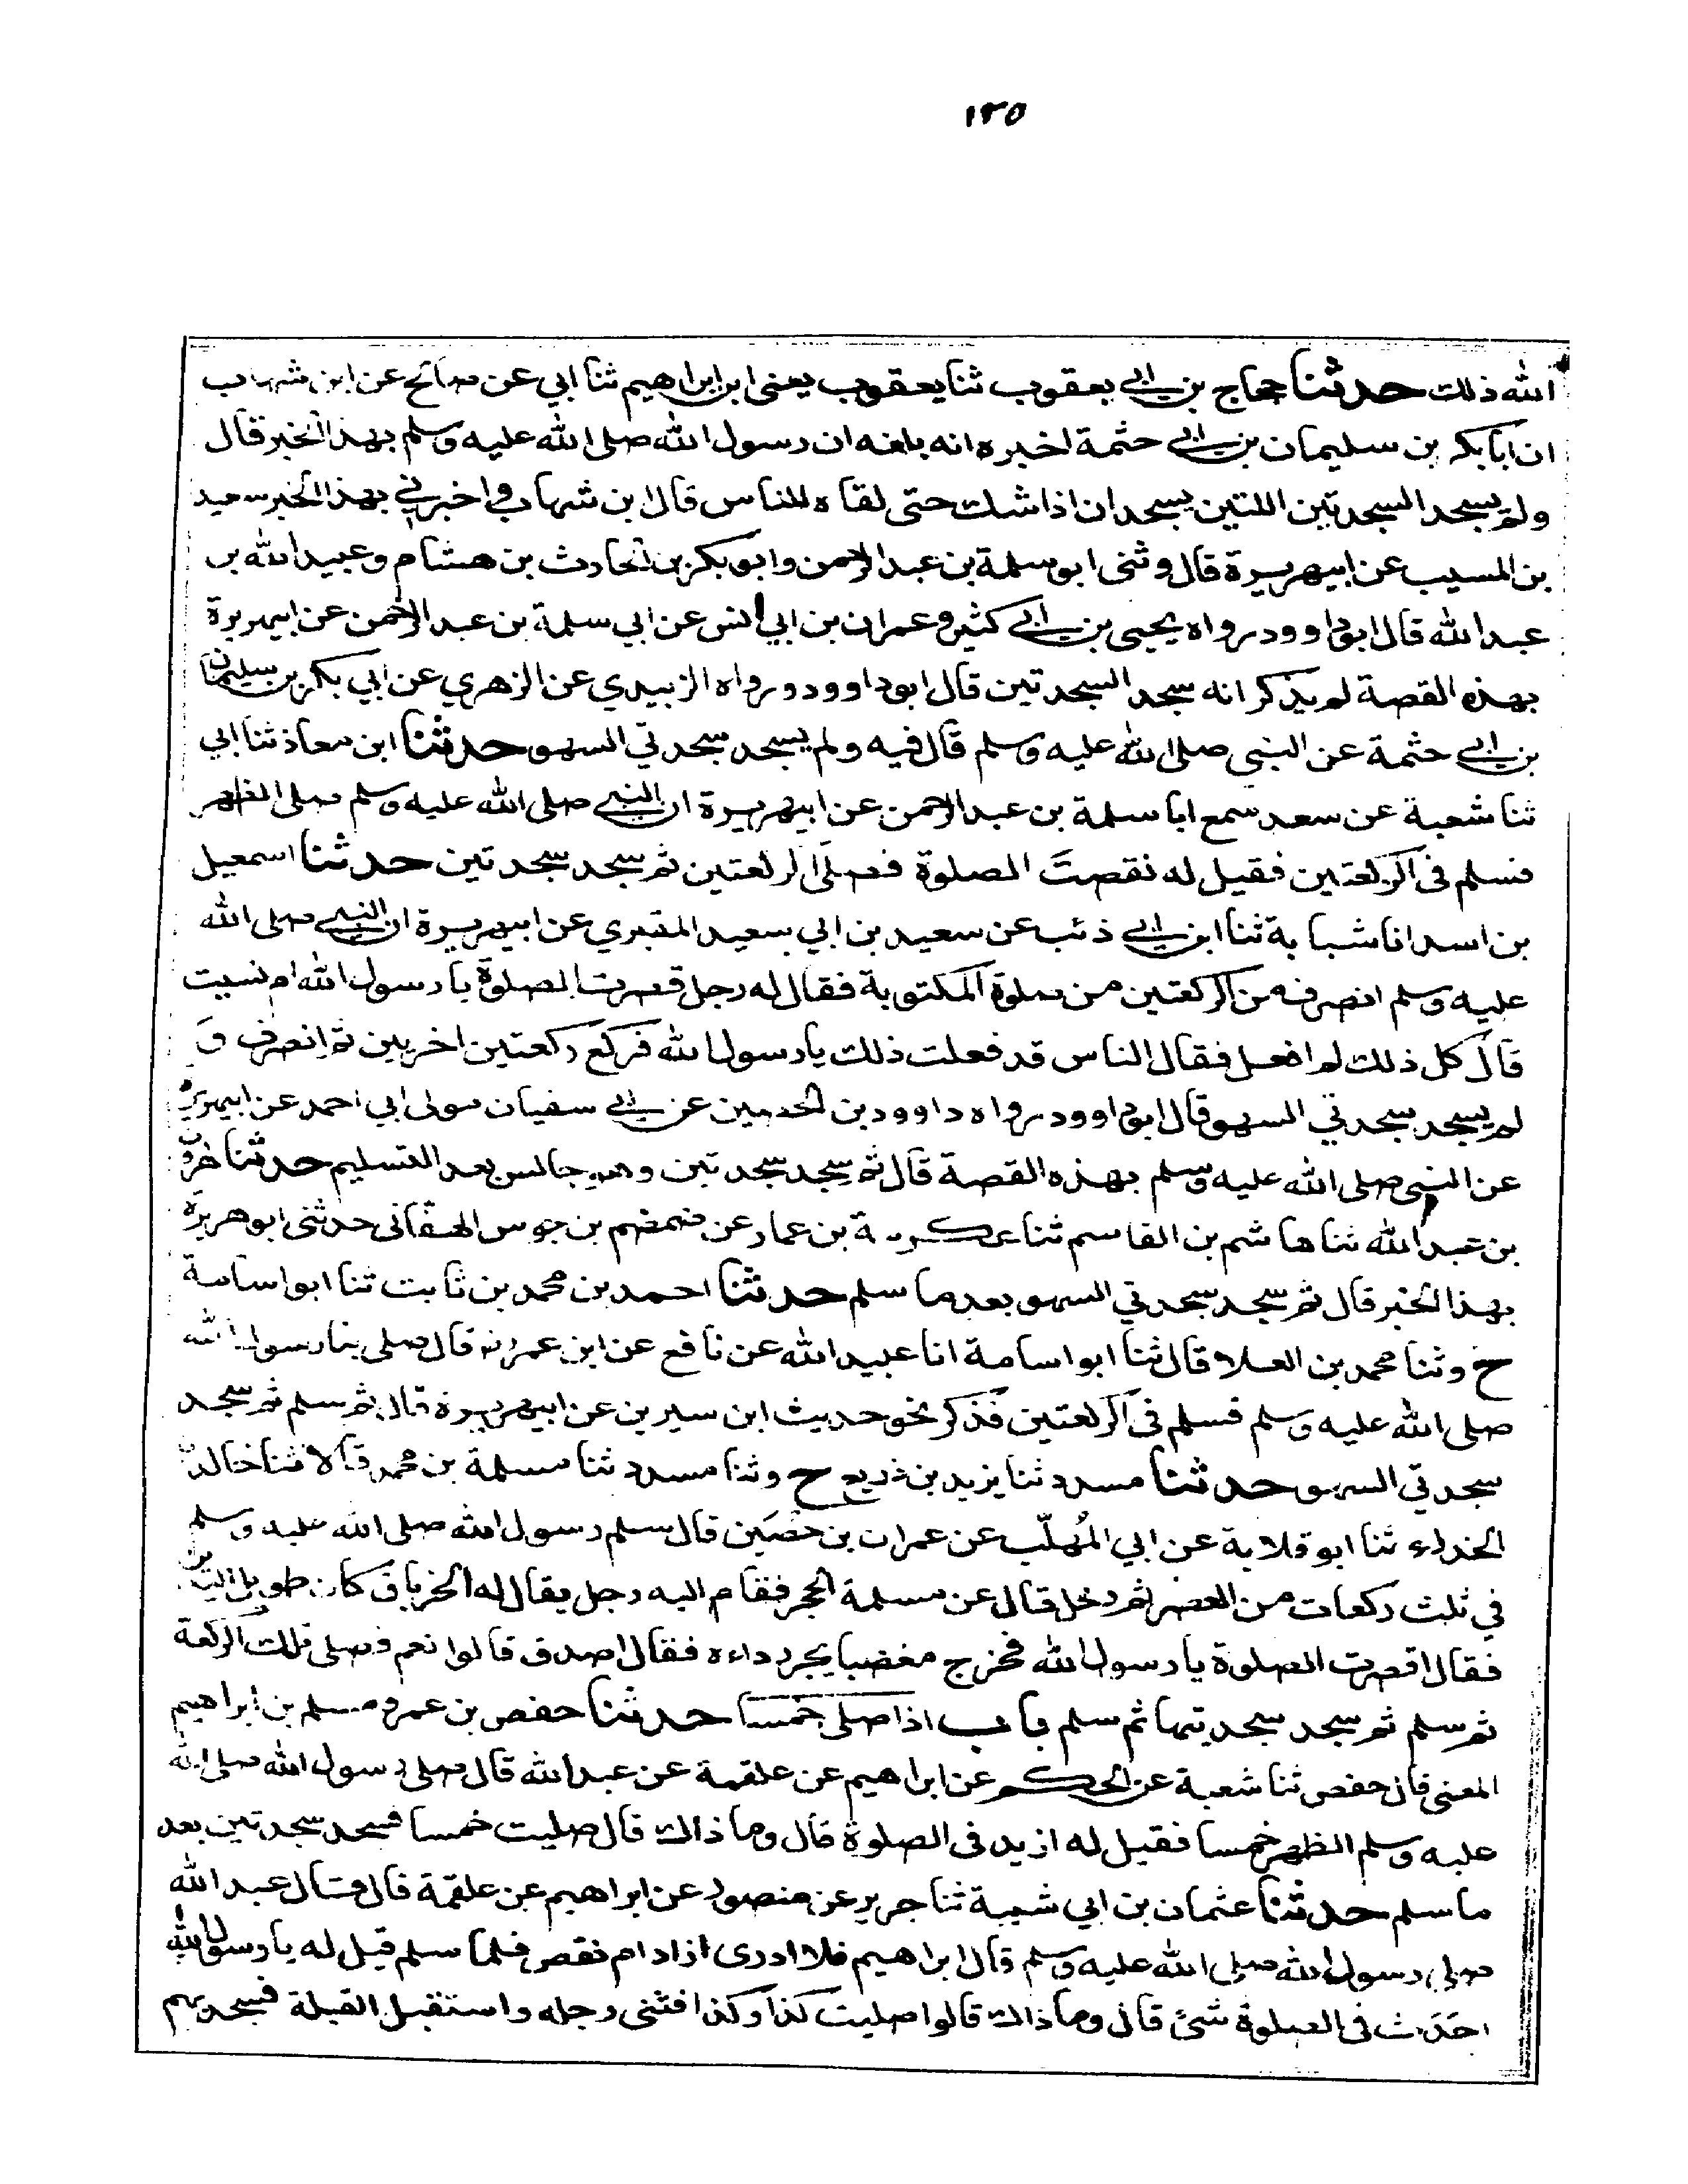 ١٢٥
الله ذلك حدثنا حجاج بن ابي يعقوب ثنا يعقوب يعنى ابن ابراهيم ثنا ابي عن صالح عن ابن شهاب
ان ابا بكر بن سليمان بن ابي حثمة اخبره انه بلغه ان رسول الله صلى الله عليه وسلم بهذا الخبر قال
ولم يسجد السجدتين اللتين يسجدان اذا شك حتى لقاه الناس قال ابن شهاب واخبرني بهذا الخبر سعيد
بن المسيب عن ابيهريرة قال وثنى ابو سلمة بن عبد الرحمن وابو بكر بن الحارث بن هشام وعبيد الله بن
عبد الله قال ابو داوود رواه يحيى بن ابي كثير وعمران بن ابي انس عن ابي سلمة بن عبد الرحمن عن ابيهريرة
بهذه القصة لم يذكر انه سجد السجدتين قال ابو داوود ورواه الزبيدي عن الزهري عن ابي بكر بن سليمان
بن ابي حثمة عن النبي صلى الله عليه وسلم قال فيه ولم يسجد سجدتي السهو حدثنا ابن معاذ ثنا ابي
ثنا شعبة عن سعد سمع ابا سلمة بن عبد الرحمن عن ابيهريرة ان النبي صلى الله عليه وسلم صلى الظهر
فسلم في الركعتين فقيل له نقصت الصلوة فصلى الركعتين ثم سجد سجدتين حدثنا اسمعيل
بن اسد انا شبابة ثنا ابن ابي ذئب عن سعيد بن ابي سعيد المقبري عن ابيهريرة ان النبي صلى الله
عليه وسلم انصرف من الركعتين من صلوة المكتوبة فقال له رجل قصرت الصلوة يا رسول الله ام نسيت
قال كل ذلك لم افعل فقال الناس قد فعلت ذلك يا رسول الله فركع ركعتين اخريين ثم انصرف و
لم يسجد سجدتي السهو قال ابو داوود رواه داوود بن الحصين عن ابي سفيان مولى ابي احمد عن ابيهريرة
عن النبي صلى الله عليه وسلم بهذه القصة قال ثم سجد سجدتين وهو جالس بعد التسليم حدثنا هرون
بن عبد الله ثنا هاشم بن القاسم ثنا عكرمة بن عمار عن ضمضم بن جوس الهفانى حدثنى ابو هريرة
بهذا الخبر قال ثم سجد سجدتي السهو بعد ما سلم حدثنا احمد بن محمد بن ثابت ثنا ابو اسامة
ح وثنا محمد بن العلا قال ثنا ابو اسامة انا عبيد الله عن نافع عن ابن عمر قال صلى بنا رسول الله
صلى الله عليه وسلم فسلم في الركعتين فذكر نحو حديث ابن سيرين عن ابيهريرة قال ثم سلم ثم سجد
سجدتي السهو حدثنا مسدد ثنا يزيد بن ذريع ح وثنا مسدد ثنا مسلمة بن محمد قالا ثنا خالد
الحذاء ثنا ابو قلابة عن ابي المُهلّب عن عمران بن حصَين قال سلم رسول الله صلى الله عليه وسلم
في ثلث ركعات من العصر ثم دخل قال عن مسلمة الحجر فقام اليه رجل يقال له الخرباق كان طويل اليدين
فقال اقصرت الصلوة يا رسول الله فخرج مغضبا يجر رداءه فقال اصدق قالوا نعم فصلى تلك الركعة
ثم سلم ثم سجد سجدتيها ثم سلم باب اذا صلى خمسا حدثنا حفص بن عمر ومسلم بن ابراهيم
المعنى قال حفص ثنا شعبة عن الحكم عن ابراهيم عن علقمة عن عبد الله قال صلى رسول الله صلى الله
عليه وسلم الظهر خمسا فقيل له ازيد فى الصلوة قال وما ذاك قال صليت خمسا فسجد سجدتين بعد
ما سلم حدثنا عثمان بن ابي شيبة ثنا جرير عن منصور عن ابراهيم عن علقمة قال قال عبد الله
صلى رسول الله صلى الله عليه وسلم قال ابراهيم فلا ادرى ازاد ام نقص فلما سلم قيل له يا رسول الله
احَدَث فى الصلوة شئ قال وما ذاك قالوا صليت كذا وكذا فثنى رجله واستقبل القبلة فسجد بهم